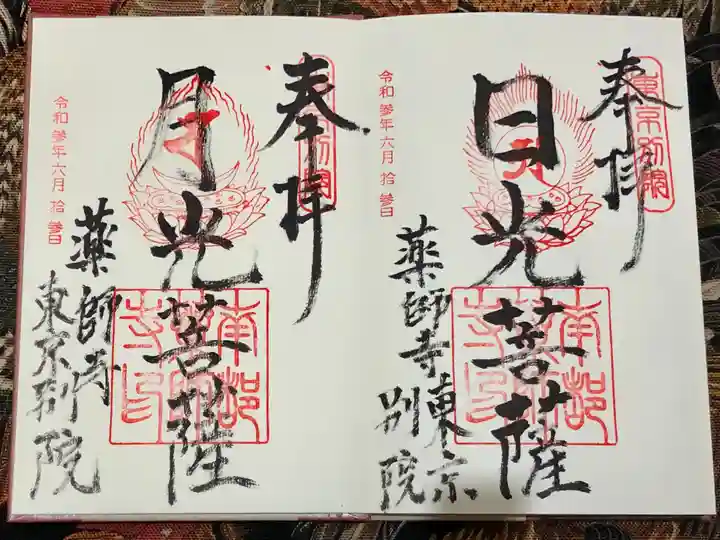 奉拝
東京別院
日光菩薩
令和参年六月拾参日
薬師寺東京
別院
奉拝
月光菩薩
令和参年六月拾参日
薬師寺
東京別院